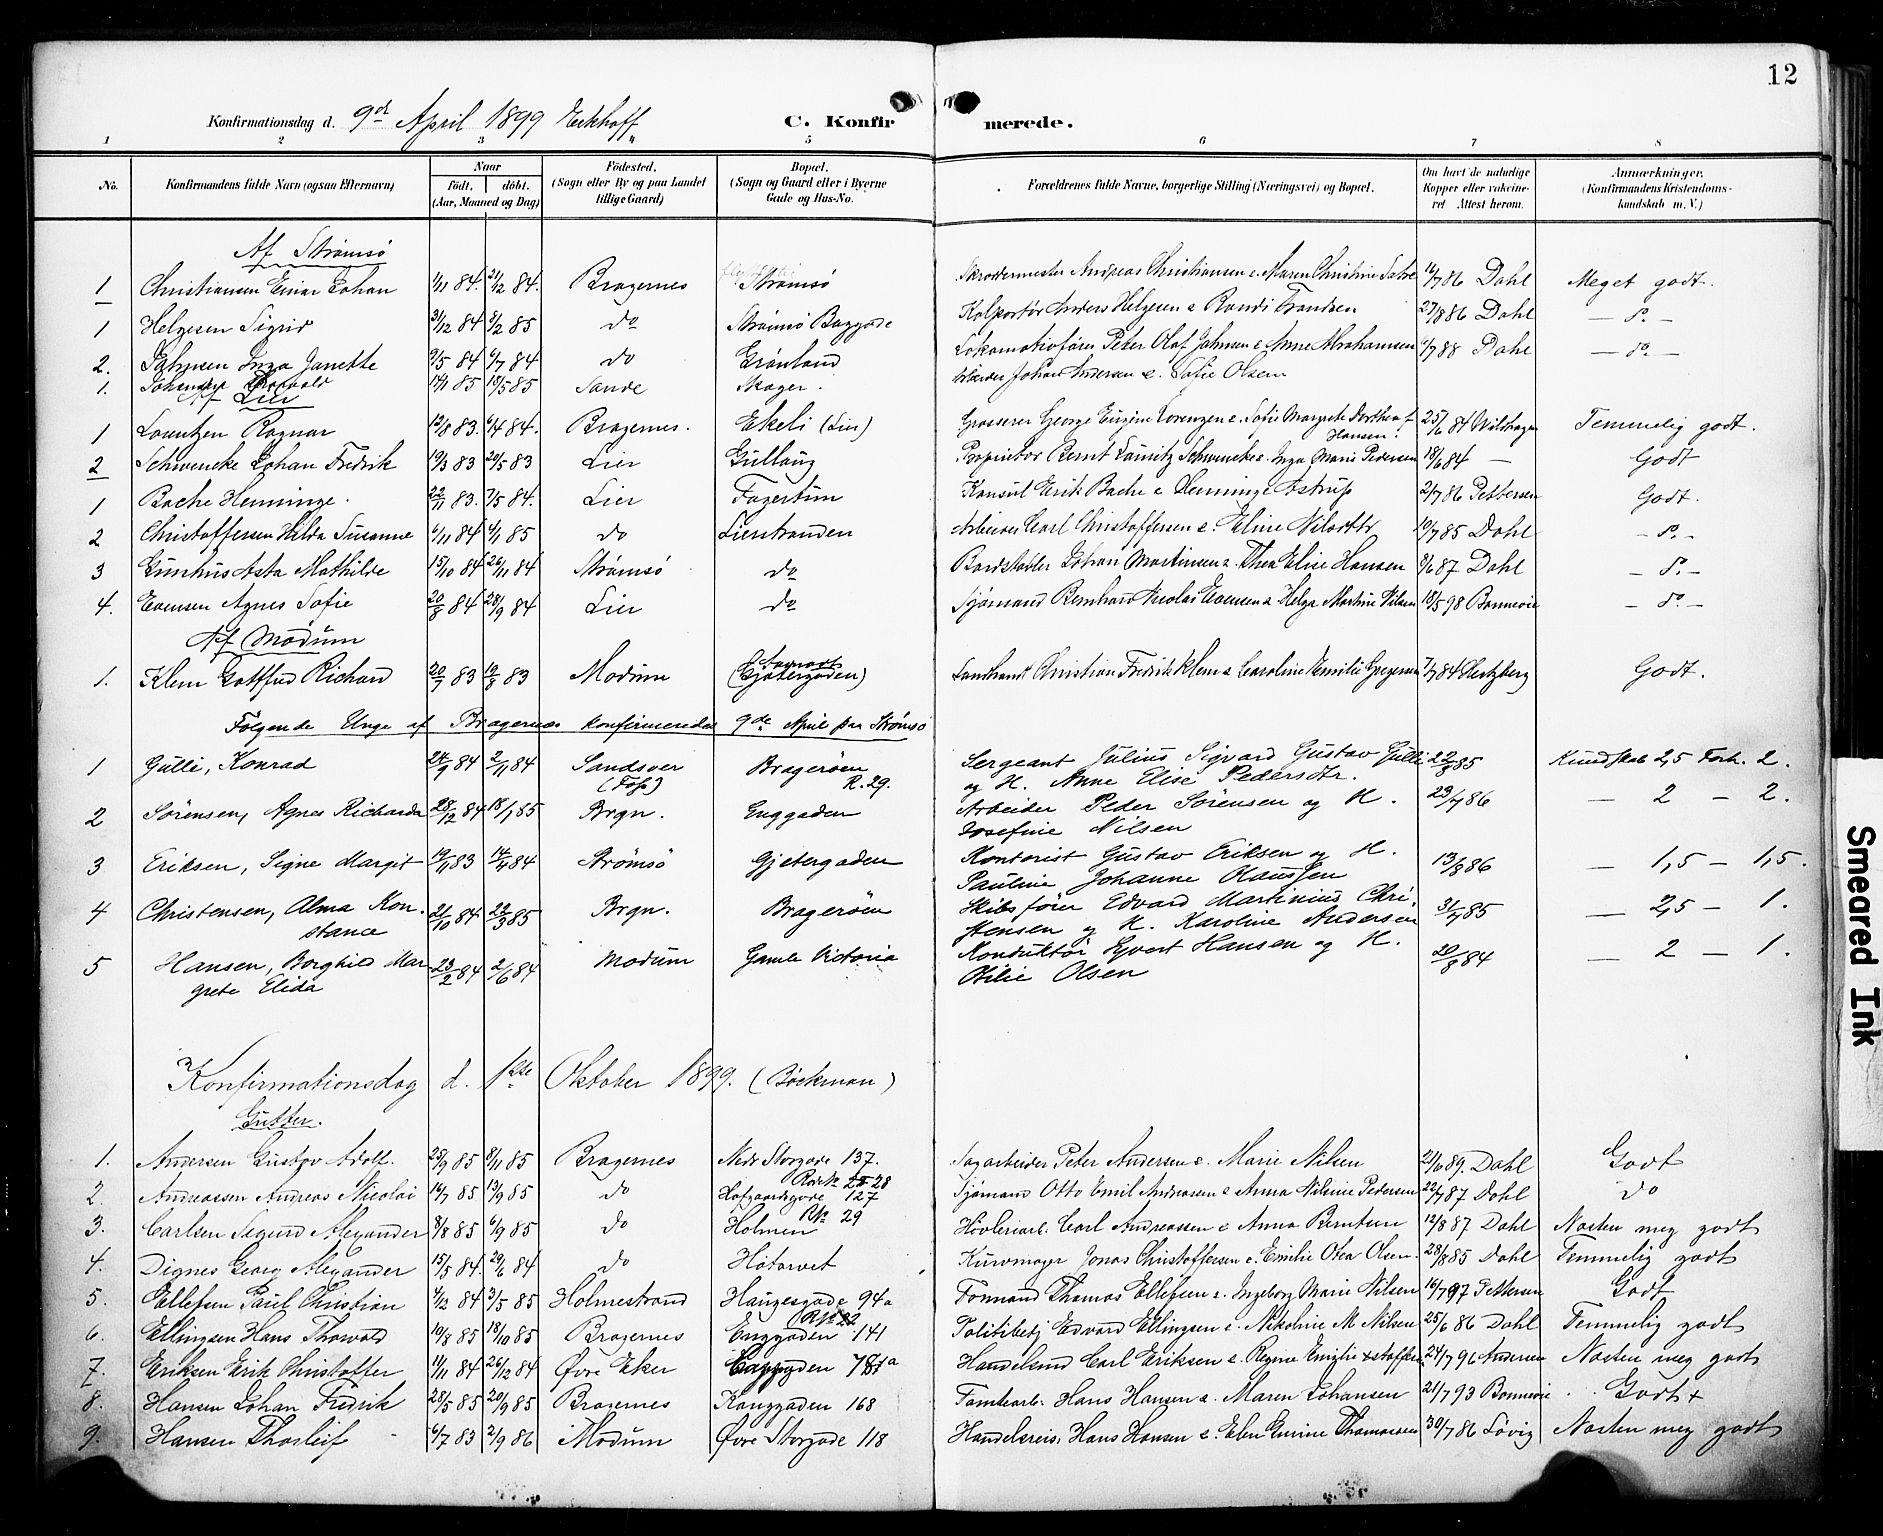 12
Konfirmationsdag d. 9de April 1899 Eckhoff C. Konfirmerede.
1 2 3 4 5 6 7 8
No. Konfirmandens fulde Navn (ogsaa Efternavn) Naar født. døbt. (Aar, Maaned og Dag) Fødested. (Sogn eller By og paa Landet tillige Gaard) Bopæl. (Sogn og Gaard eller i Byerne Gade og Hus-No. Forældrenes fulde Navne, borgerlige Stilling (Næringsvei) og Bopæl. Om havt de naturlige Kopper eller vakcineret Attest herom. Anmærkninger. (Konfirmandens Kristendomskundskab m. V.)
Af Strømsø
1 Christiansen Einar Johan 1/11 84. 21/12 84. Bragernes Strømsø Skræddermester Andreas Christiansen e. Maren Christine 14/7 86 Dahl Meget godt.
1 Helgesen Sigrid 31/12 84 8/2 85 do Strømsø Baggade Kolportør Anders Helgesen e Randi Trandsen 27/8 86 Dahl - do -
2. Jahnsen Inga Janette 9/5 84 6/7 84 do Grønland Lokomotivfører Peter Olaf Jahnsen e. Anne Abrahamsen 1/7 88 Dahl - do -
1. Johansen Thorvald 14/1 85 10/5 85 Sande Skoger. Arbeider Johan Andersen e. Sofie Olsen
Af Lier
1 Lorentzen Ragnar 12/8 83. 6/4 84. Bragernes. Ekeli (Lier) Grosserer George Eugine Lorenzen e. Sofie Margrete Dorthea f. Hansen. 25/6 84 Temmelig godt.
2 Schwencke Johan Fredrik 19/3 83 20/5 83 Lier Gullaug Proprietær Bernt Lauritz Schwencke e. Inga Marie Pedersen 18/6 84 - Godt
1 Bache Henninge. 22/11 83. 7/5 84. Lier Fagertun Konsul Erik Bache e Henninge Astrup 2/7 86 Pettersen Godt.
2 Christoffersen Hilda Susanne 6/11 84 4/1 85 do Lierstranden Arbeider Carl Christoffersen e. Eline Nilsdtr 10/7 85 Dahl - do -
3 Gunhus Asta Mathilde 15/10 84 26/11 84 Strømsø do Johan Martinsen e. Thea Elise Hansen 8/6 87 Dahl - do -
4. Evensen Agnes Sofie 20/8 84 28/9 84 Lier do Sjømand Bernhard Nicolai Evensen e Helga Martine Nilsen 18/5 98 Bonnevie - do -
Af Modum
1. Klem Gottfred Richard 20/7 83 19/8 83 Modum (Gjetergaden) Landhandl Christian Fredrik Klem e Caroline Emilie Gregersen 7/7 84 Hertzberg Godt.
Følgende Unge af Bragernes konfirmeredes 9de April paa Strømsø
1 Gulli, Konrad 24/9 84 2/11 84 Sandsver (Foss) Bragerøen R. 29. Sergeant Julius Sigvard Gustav Gulli og H. Anne Elise Pedersdtr. 22/8 85 Kundskab 2,5 Forh. 2.
2 Sørensen, Agnes Richarda 28/12 84 18/1 85 Brgn. Enggaden Arbeider Peder Sørensen og H. Josefine Nilsen 23/7 86 - 2 - 2.
3 Eriksen, Signe Margit 19/11 83 14/4 84 Strømsø Gjetergaden Kontorist Gustav Eriksen og H. Pauline Johanne Olaussen 13/8 86 - 1,5 - 1,5.
4 Christensen, Alma Konstance 21/10 84 22/3 85 Brgn. Bragerøen Skibsfører Edvard Martinius Christensen og H. Karoline Andersen 31/7 85 - 2,5 - 1.
5 Hansen, Borghild Margrete Elida 23/2 84 2/6 84 Modum Gamle Victoria Konduktør Syvert Hansen og H. Otilie Olsen 20/8 84 - 2 - 1.
Konfirmationsdag d. 1ste Oktober 1899. (Bøckman)
Gutter.
1. Andersen Gustav Adolf. 25/9 85 8/11 85 Bragernes Nedr Storgade 137. Sagarbeider Peter Andersen e. Marie Nilsen 21/6 89. Dahl Godt
2. Andreassen Andreas Nicolai 16/7 85 13/9 85 do Hofgaardsgade 127 Sjømand Otto Emil Andreasen e Anna Nilsine Pedersen 22/7 87 Dahl do
3. Carlsen Sigurd Alexander 8/8 85 6/9 85 do Holmen R No 29 Høvleriarb. Carl Andreassen e Anna Berntsen 12/8 87 Dahl Næsten meg godt
4. Dignes Georg Alexander 15/5 84. 29/6 84 do Høtorvet Kurvmager Jonas Christoffersen e. Emilie Otea Olsen. 28/8 85 Dahl Temmelig godt
5. Ellefsen Paul Christian 4/12 84 3/5 85 Holmestrand Haugesgade 94a Formand Thomas Ellefsen e. Ingeborg Marie Nilsen 16/7 97 Pettersen Godt
6. Ellingsen Hans Thorvald 19/8 85 18/10 85 Bragernes Enggaden 141 Politibetj Edvard Ellingsen e. Nikoline M Nilsen 25/6 86 Dahl Temmelig godt
7. Eriksen Erik Christoffer 11/11 84 26/12 84 Øvre Eker Handelsmd Carl Eriksen e. Regine Emilie 24/7 96 Andersen Næsten meg godt
8. Hansen Johan Fredrik 28/5 85 20/9 85 Bragernes Konggaden 168 Tomtearb. Hans Hansen e. Maren Johansen 21/7 93 Bonnevie Godt +
9. Hansen Thorleif 6/7 83 2/9 86 Modum Øvre Storgade 118 Handelsreis. Hans Hansen e. Elen Gurine Thomassen 30/7 86 Løvig Næsten meg godt
Smeared Ink